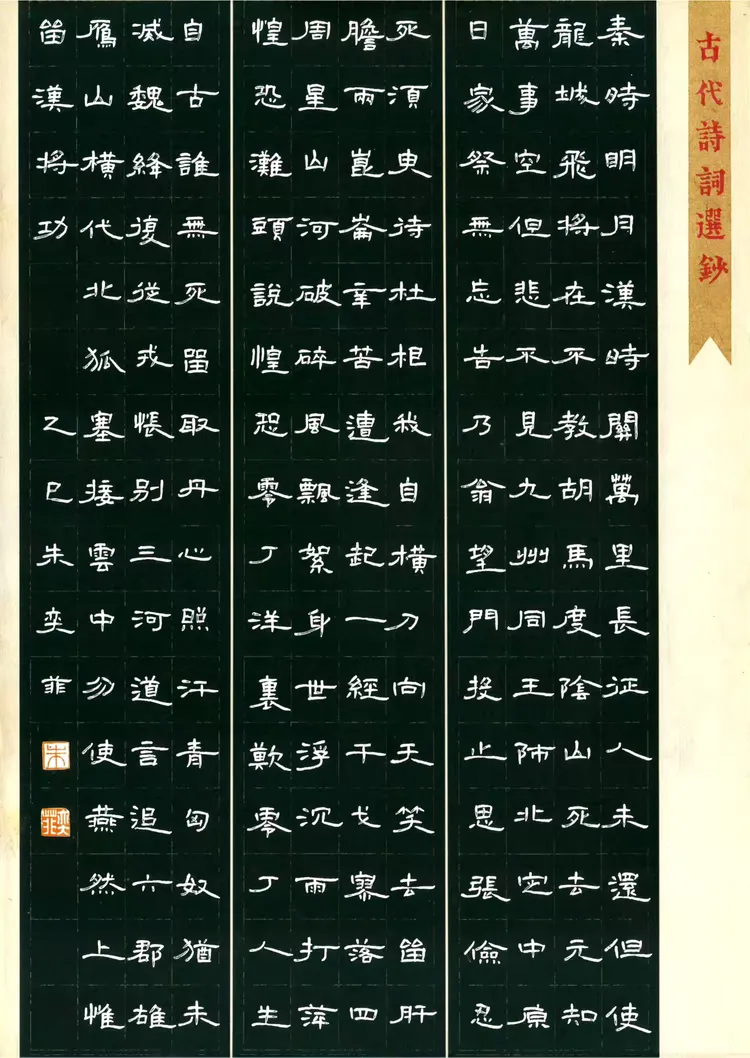 古代詩詞選鈔
秦時明月漢時關萬里長征人未還但使
龍城飛將在不教胡馬度陰山死去元知
萬事空但悲不見九州同王師北定中原
日家祭無忘告乃翁望門投止思張儉忍
死須臾待杜相我自橫刀向天笑去留肝
膽兩崑崙辛苦遭逢起一經干戈寥落四
周星山河破碎風飄絮身世浮沉雨打萍
惶恐灘頭說惶恐零丁洋裏歎零丁人生
自古誰無死留取丹心照汗青匈奴猶未
滅魏絳復從戎悵別三河道言追六郡雄
鴈山橫代北狐塞接雲中勿使燕然上惟
留漢將功
乙巳朱奕菲
朱
奕菲